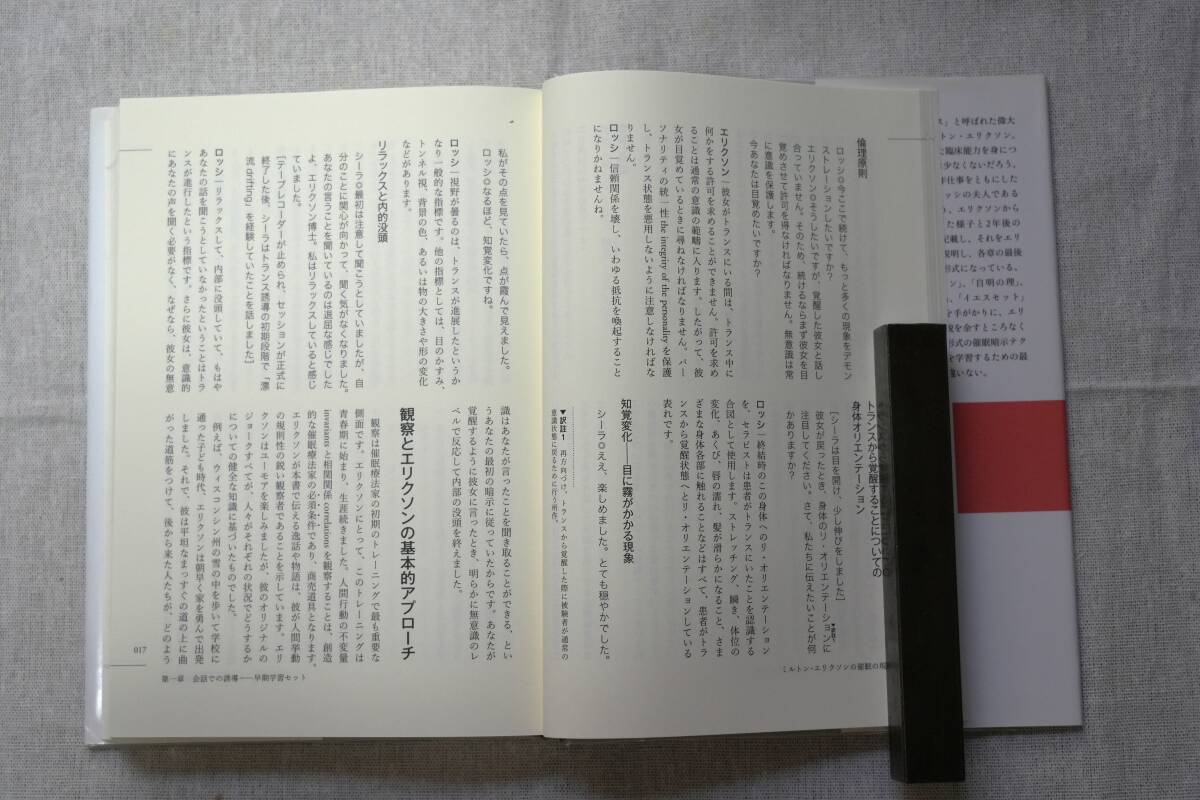 倫理原則
ロッシ◎今ここで続けて、もっと多くの現象をデモン
ストレーションしたいですか?
エリクソン◎そうしたいですが、覚醒した彼女と話し
合っていません。そのため、続けるならまず彼女を目
覚めさせて許可を得なければなりません。無意識は常
に意識を保護します。
今あなたは目覚めたいですか?
エリクソン│彼女がトランスにいる間は、トランス中に
何かをする許可を求めることができません。許可を求め
ることは通常の意識の範疇に入ります。したがって、彼
女が目覚めているときに尋ねなければなりません。パー
ソナリティの統一性 the integrity of the personality を保護
し、トランス状態を悪用しないように注意しなければな
りません。
ロッシ│信頼関係を壊し、いわゆる抵抗を喚起すること
になりかねませんね。
トランスから覚醒することについての
身体オリエンテーション
[シーラは目を開け、少し伸びをしました]
彼女が戻ったとき、身体のリ・オリエンテーションに
注目してください。さて、私たちに伝えたいことが何
かありますか?
ロッシ│終結時のこの身体へのリ・オリエンテーション
を、セラピストは患者がトランスにいたことを認識する
合図として使用します。ストレッチング、瞬き、体位の
変化、あくび、唇の濡れ、髪が滑らかになること、さま
ざまな身体各部に触れることなどはすべて、患者がトラ
ンスから覚醒状態へとリ・オリエンテーションしている
表れです。
知覚変化――目に霧がかかる現象
シーラ◎ええ、楽しめました。とても穏やかでした。
▼訳註1 再方向づけ。トランスから覚醒した際に被験者が通常の
意識状態に戻るために行う所作。
ミルトン・エリクソンの催眠の現
私がその点を見ていたら、点が霞んで見えました。
ロッシ◎なるほど、知覚変化ですね。
ロッシ│視野が曇るのは、トランスが進展したというか
なり一般的な指標です。他の指標としては、目のかすみ、
トンネル視、背景の色、あるいは物の大きさや形の変化
などがあります。
リラックスと内的没頭
シーラ◎最初は注意して聞こうとしていましたが、自
分のことに関心が向かって、聞く気がなくなりました。
あなたの言うことを聞いているのは退屈な感じでした
よ、エリクソン博士。私はリラックスしていると感じ
ていました。
[テープレコーダーが止められ、セッションが正式に
終了した後、シーラはトランス誘導の初期段階で「漂
流 drifting」を経験していたことを話しました]
ロッシ│リラックスして、内部に没頭していて、もはや
あなたの話を聞こうとしていなかったということはトラ
ンスが進行したという指標です。さらに彼女は、意識的
にあなたの声を聞く必要がなく、なぜなら、彼女の無意
識はあなたが言ったことを聞き取ることができる、とい
うあなたの最初の暗示に従っていたからです。あなたが
覚醒するように彼女に言ったとき、明らかに無意識のレ
ベルで反応して内部の没頭を終えました。
観察とエリクソンの基本的アプローチ
観察は催眠療法家の初期のトレーニングで最も重要な
側面です。エリクソンにとって、このトレーニングは
青春期に始まり、生涯続きました。人間行動の不変量
invariants と相関関係 correlations を観察することは、創造
的な催眠療法家の必須条件であり、商売道具となります。
エリクソンが本書で伝える逸話や物語は、彼が人間挙動
の規則性の鋭い観察者であることを示しています。エリ
クソンはユーモアを楽しみましたが、彼のオリジナルの
ジョークすべてが、人々がそれぞれの状況でどうするか
についての健全な知識に基づいたものでした。
例えば、ウィスコンシン州の雪の中を歩いて学校に
通った子ども時代、エリクソンは朝早く家を勇んで出発
しました。それで、彼は平坦なまっすぐの道の上に曲
がった道筋をつけて、後から来た人たちが、どのよう
017
第一章 会話での誘導――早期学習セット
ス」と呼ばれた偉大
トン・エリクソン。
臨床能力を身につ
少なくないだろう。
仕事をともにした
ッシの夫人である
、エリクソンから
た様子と2年後の
記載し、それをエリ
説明し、各章の最後
形式になっている。
ン」、「自明の理」、
、「イエスセット」
を手がかりに、エリ
を余すところなく
形式の催眠暗示テク
を学習するための最
違いない。